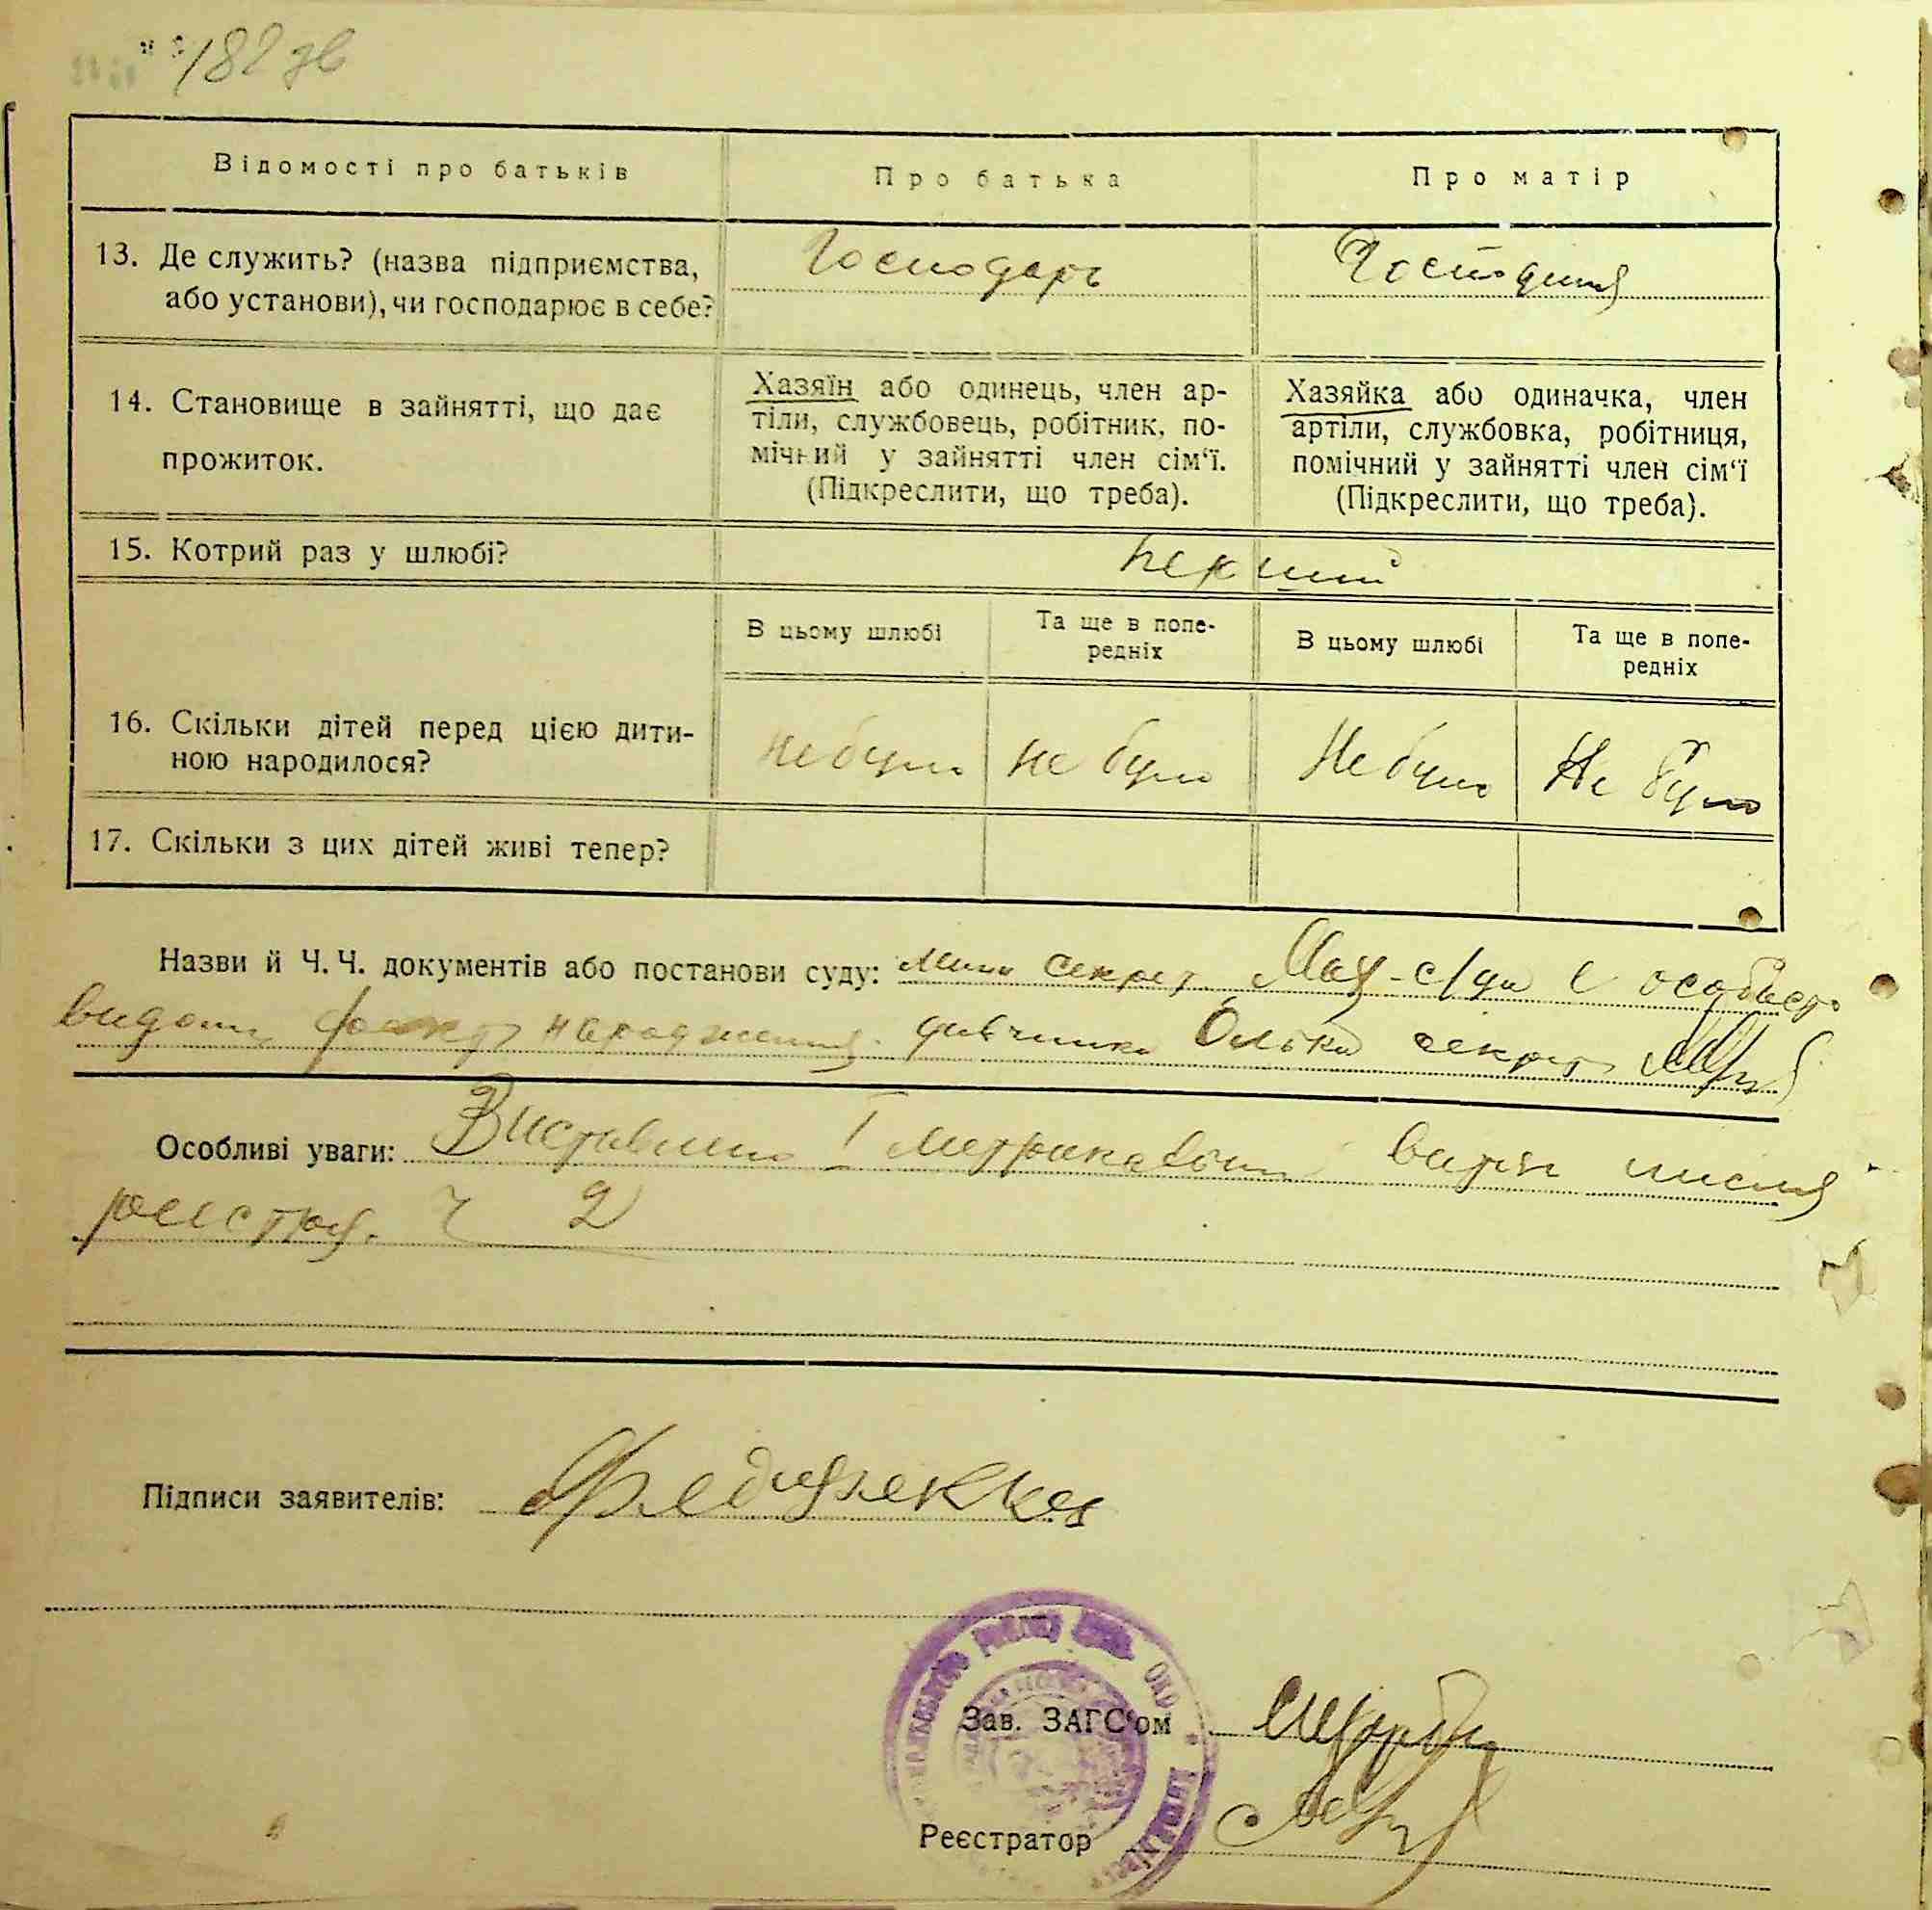 182 зв
Відомості про батьків
Про батька
Про матір
13. Де служить? (назва підприємства,
або установи), чи господарює в себе?
Господарь
Господиня
14. Становище в зайнятті, що дає
прожиток.
Хазяїн або одинець, член ар-
тіли, службовець, робітник, по-
мічний у зайнятті член сім‘ї.
(Підкреслити, що треба).
Хазяйка або одиначка, член
артіли, службовка, робітниця,
помічний у зайнятті член сім‘ї
(Підкреслити, що треба).
15. Котрий раз у шлюбі?
перший
В цьому шлюбі
Та ще в попе-
редніх
В цьому шлюбі
Та ще в попе-
редніх
16. Скільки дітей перед цією дити-
ною народилося?
Не було
не було
Не було
Не було
17. Скільки з цих дітей живі тепер?
Назви й Ч. Ч. документів або постанови суду: секрет с/ди є особисто
факт народження дивчинки секрет
Особливі уваги: Виставлено І витяг
реєстру. ч 2
Підписи заявителів:
Зав. ЗАГС‘ом
Реєстратор